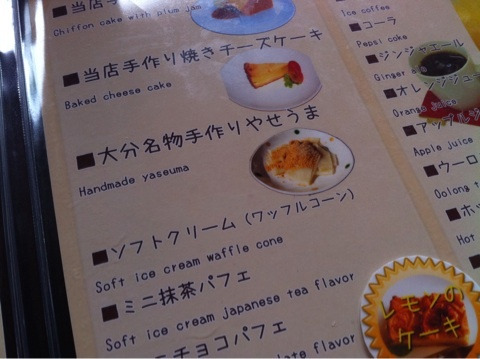 当店手
Chiffon cake with plum jam
■当店手作り焼きチーズケーキ
Baked cheese cake
■大分名物手作りやせうま
Handmade yaseuma
■ソフトクリーム(ワッフルコーン)
Soft ice cream waffle cone
■ミニ抹茶パフェ
Soft ice cream japanese tea flavor
チョコパフェ
flavor
Ice coffee
■コーラ
Pepsi coke
■ジンジャエール
Ginger
■オレンジジュ
Orange juice
■アップルジ
Apple juice
■ウーロ
Oolong t
■ホッ
Hot
レモンの
ケーキ